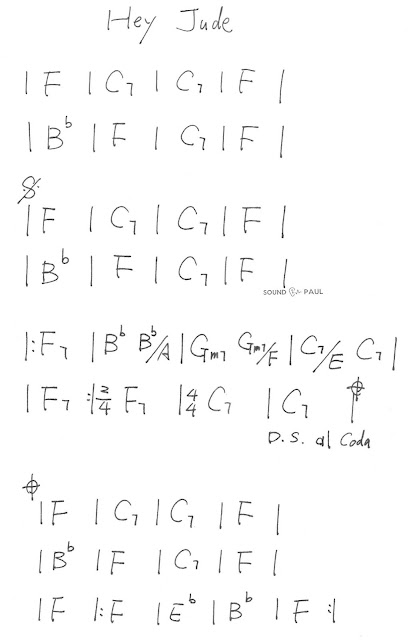 Hey Jude
| F | C7 | C7 | F |
| B♭ | F | C7 | F |
𝄋
| F | C7 | C7 | F |
| B♭ | F | C7 | F |
SOUND PAUL
|: F7 | B♭ B♭/A | Gm7 Gm7/F | C7/E C7 |
| F7 :| 2/4 F7 | 4/4 C7 | C7 𝄌 |
D.S. al Coda
𝄌
| F | C7 | C7 | F |
| B♭ | F | C7 | F |
| F |: F | E♭ | B♭ | F :|